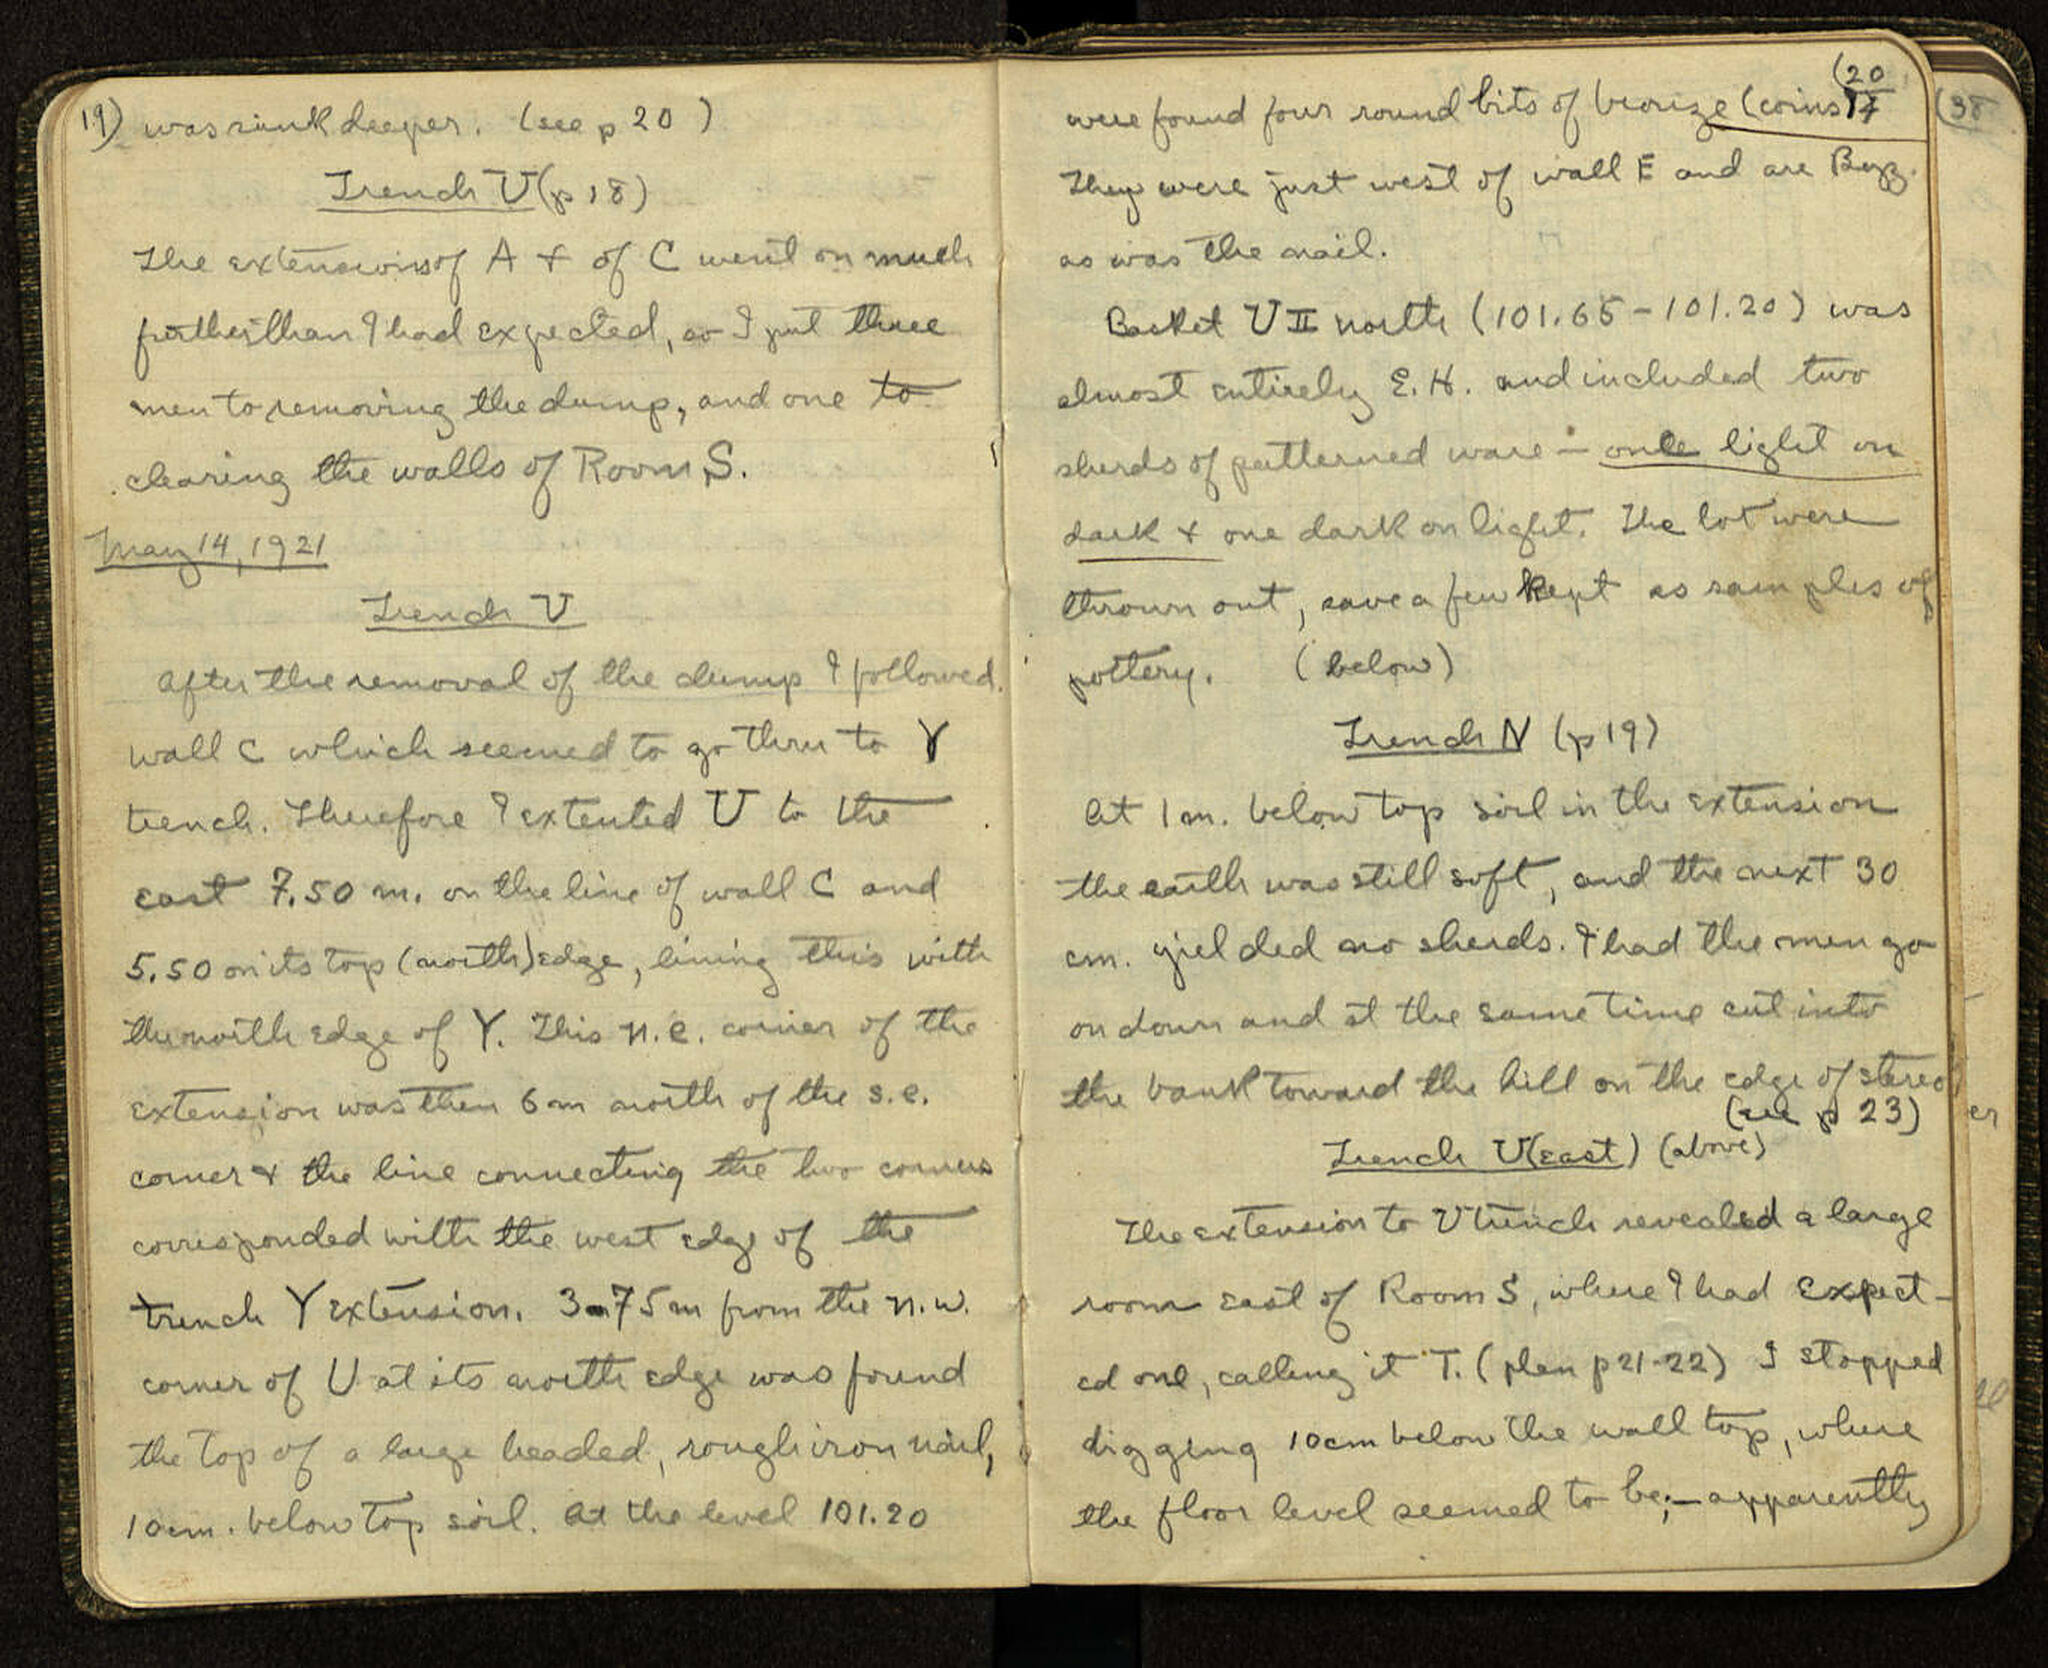 19) was sunk deeper. (see p 20)
Trench V (p 18)
The extensions of A & of C went on much
further than I had expected, so I put three
men to removing the dump, and one to
clearing the walls of Room S.
May 14, 1921
Trench V
After the removal of the dump I followed
wall C which seemed to go thru to Y
trench. Therefore I extented V to the
east 7.50 m. on the line of wall C and
5.50 on its top (north) edge, lining this with
the north edge of Y. This n.e. corner of the
extension was then 6 m north of the s.e.
corner & the line connecting the two corners
corresponded with the west edge of the
trench Y extension. 3.75 m from the n.w.
corner of V at its north edge was found
the top of a large headed, rough iron nail,
10 cm. below top soil. At the level 101.20
(20
were found four round bits of bronze (coins)
They were just west of wall E and are Byz.
as was the nail.
Basket V II north (101.65-101.20) was
almost entirely E.H. and included two
sherds of patterned ware - one light on
dark & one dark on light. The lot were
thrown out, save a few kept as samples of
pottery. (below)
Trench N (p 19)
At 1 m. below top soil in the extension
the earth was still soft, and the next 30
cm. yielded no sherds. I had the men go
on down and at the same time cut into
the bank toward the hill on the edge of stereo
(see p 23)
Trench V (east) (above)
The extension to V trench revealed a large
room east of Room S, where I had expect-
ed one, calling it T. (plan p 21-22) I stopped
digging 10 cm below the wall top, where
the floor level seemed to be; - apparently
(38
er